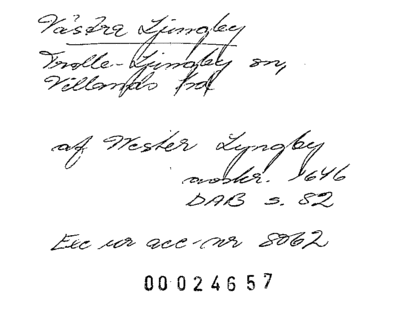 Västra Ljungby
Trolle-Ljungby sn,
Villands hd
af Wester Lyngby
avskr. 1646
DAB s. 82
Exc ur acc-nr 8062
00024657